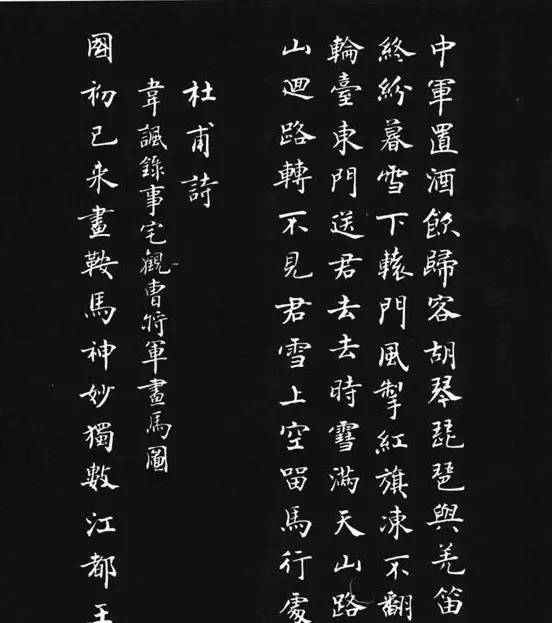 中軍置酒飲歸客胡琴琵琶與羌笛
終紛暮雪下轅門風掣紅旗凍不翻
輪臺東門送君去去時雪滿天山路
山迴路轉不見君雪上空留馬行處
杜甫詩
韋諷錄事宅觀曹將軍畫馬圖
國初已来畫鞍馬神妙獨數江都王